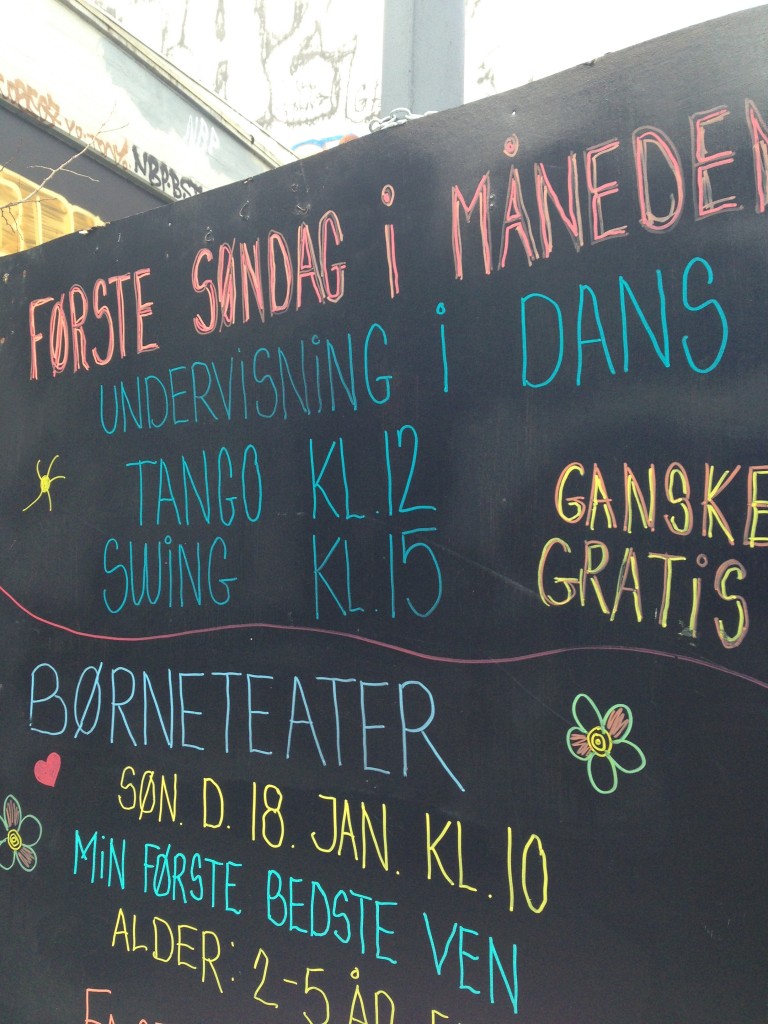 FØRSTE SØNDAG i MÅNEDEN
UNDERViSNiNG i DANS
TANGO KL.12
SWiNG KL.15
GANSKE
GRATiS
BØRNETEATER
SØN. D. 18. JAN. KL.10
MiN FØRSTE BEDSTE VEN
ALDER: 2-5 ÅR